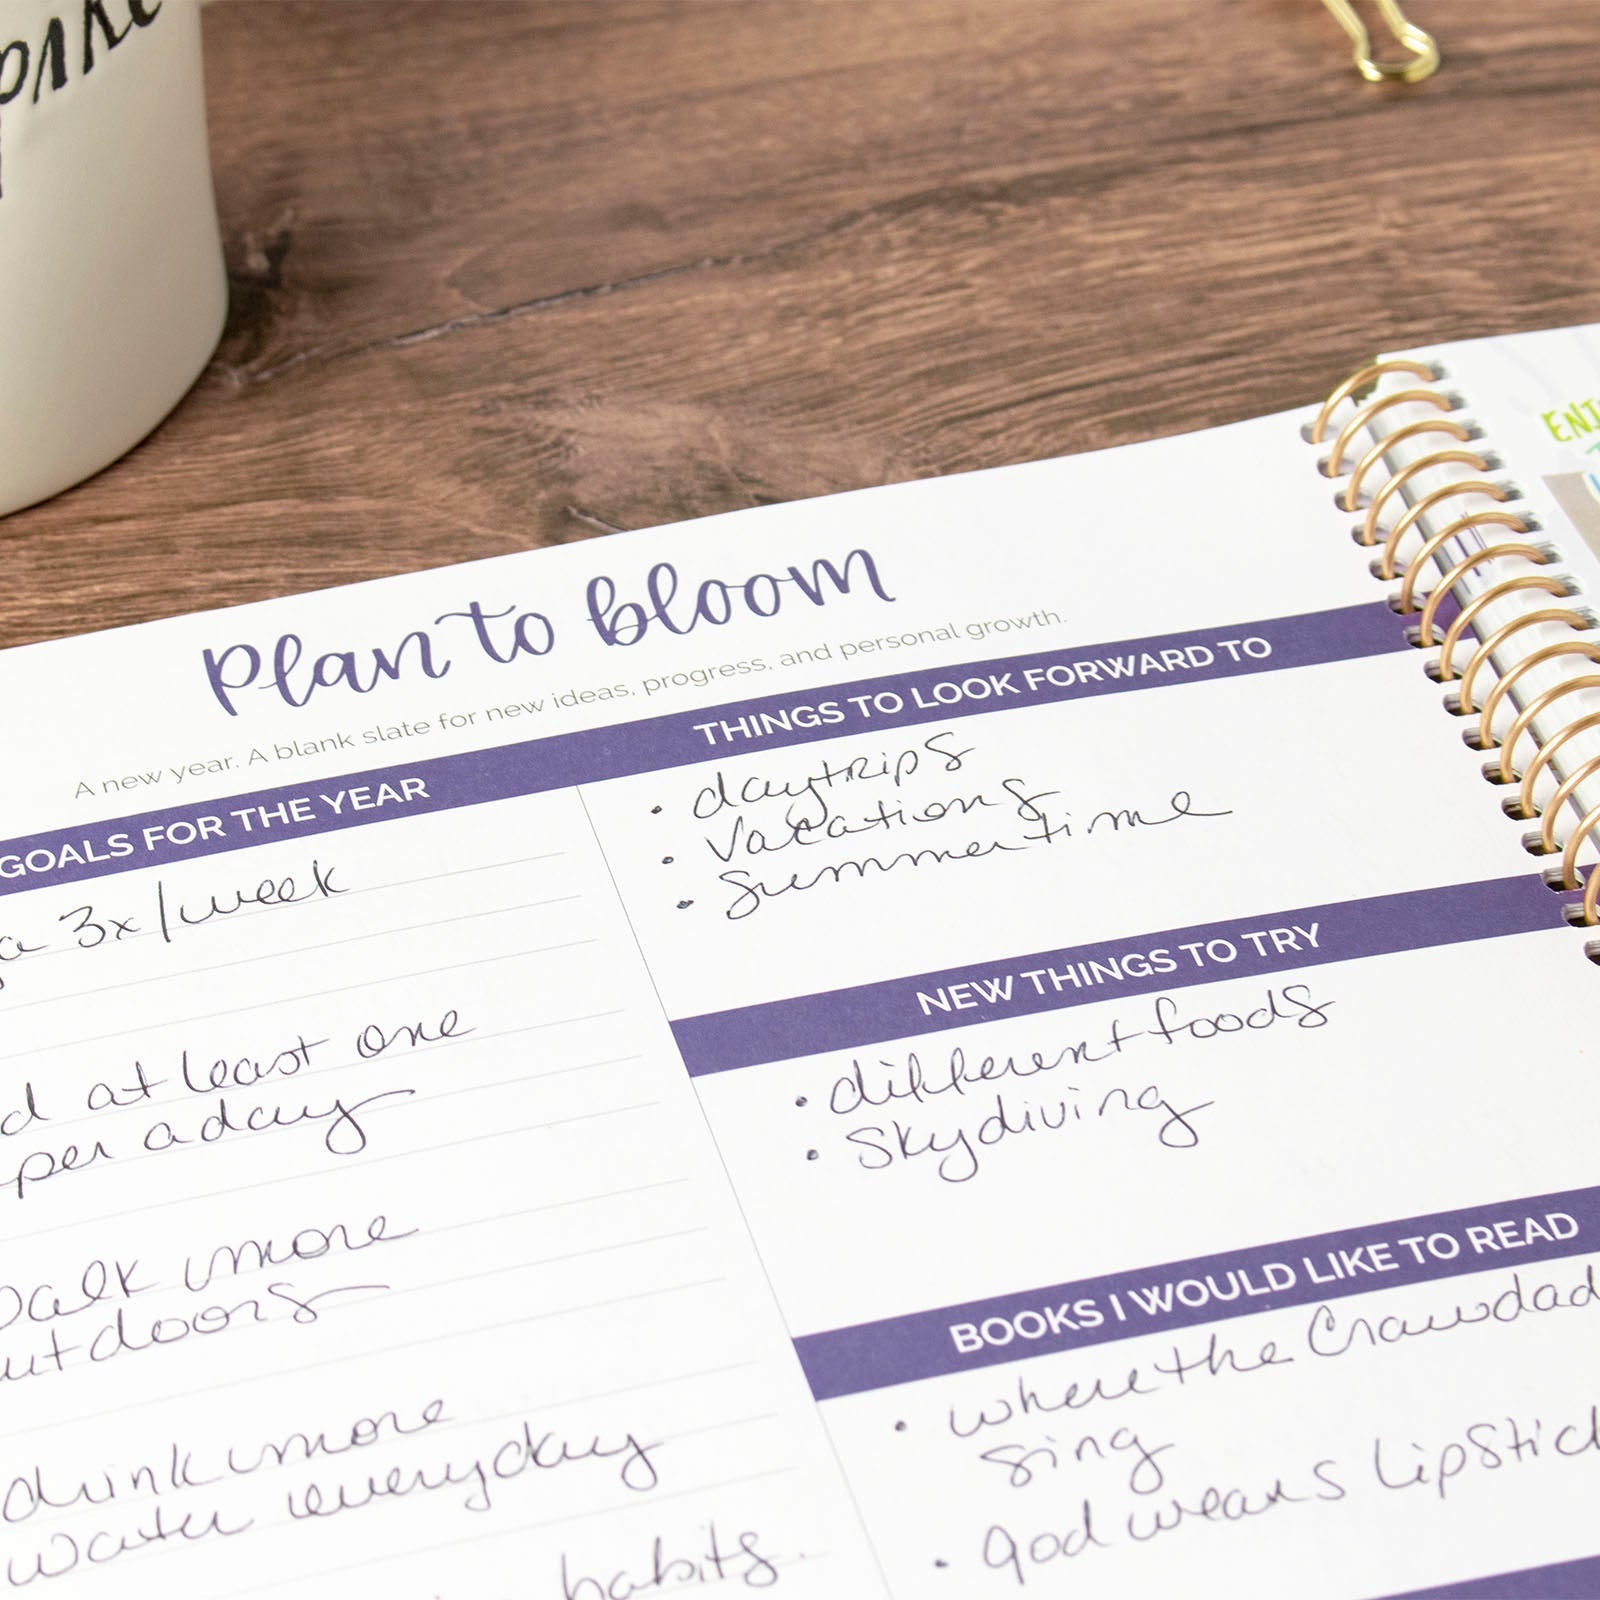 Plan to bloom
A new year. A blank slate for new ideas, progress, and personal growth.
GOALS FOR THE YEAR
3x/week
at least one
per a day
more
drink more
water everyday
habits.
THINGS TO LOOK FORWARD TO
• daytrips
• Vacations
• Summertime
NEW THINGS TO TRY
• different foods
• Skydiving
BOOKS I WOULD LIKE TO READ
• where the Crawdad
sing
• god wears lipstick